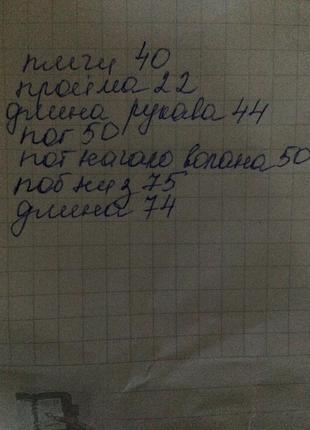 плечи 40
пройма 22
длина рукава 44
пог 50
пот начало волана 50
поб низ 75
длина 74